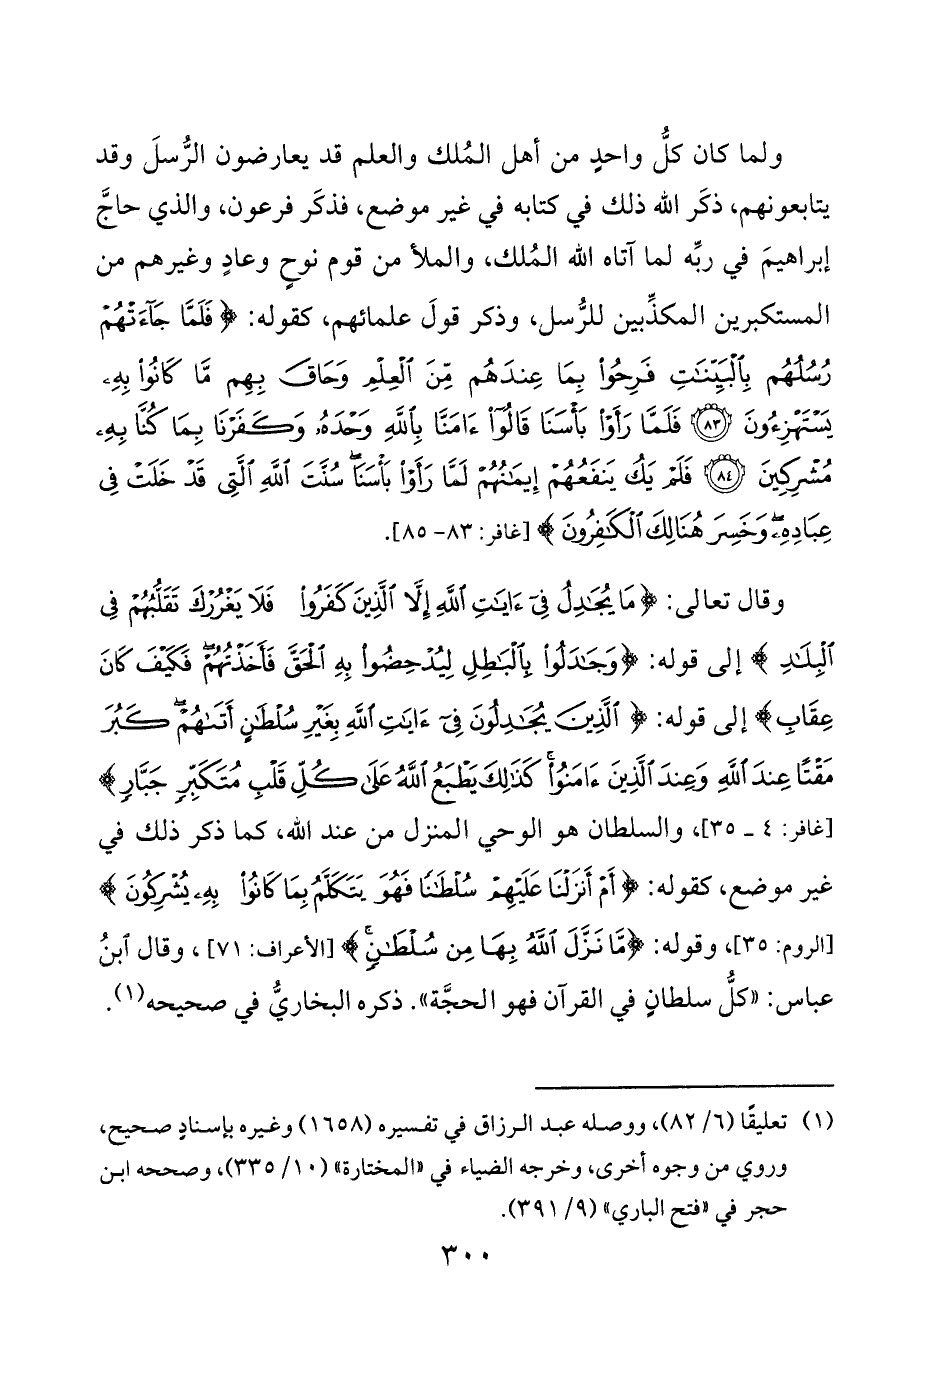 ولما كان كلُّ واحدٍ من أهل المُلك والعلم قد يعارضون الرُّسلَ وقد
يتابعونهم، ذكَر الله ذلك في كتابه في غير موضع، فذكَر فرعون، والذي حاجَّ
إبراهيمَ في ربِّه لما آتاه الله المُلك، والملأ من قوم نوحٍ وعادٍ وغيرهم من
المستكبرين المكذِّبين للرُّسل، وذكر قولَ علمائهم، كقوله: ﴿ فَلَمَّا جَآءَتْهُمْ
رُسُلُهُم بِٱلْبَيِّنَٰتِ فَرِحُوا۟ بِمَا عِندَهُم مِّنَ ٱلْعِلْمِ وَحَاقَ بِهِم مَّا كَانُوا۟ بِهِۦ
يَسْتَهْزِءُونَ ۝٨٣ فَلَمَّا رَأَوْا۟ بَأْسَنَا قَالُوٓا۟ ءَامَنَّا بِٱللَّهِ وَحْدَهُۥ وَكَفَرْنَا بِمَا كُنَّا بِهِۦ
مُشْرِكِينَ ۝٨٤ فَلَمْ يَكُ يَنفَعُهُمْ إِيمَٰنُهُمْ لَمَّا رَأَوْا۟ بَأْسَنَا ۖ سُنَّتَ ٱللَّهِ ٱلَّتِى قَدْ خَلَتْ فِى
عِبَادِهِۦ ۖ وَخَسِرَ هُنَالِكَ ٱلْكَٰفِرُونَ ﴾ [غافر: ٨٣- ٨٥].
وقال تعالى: ﴿ مَا يُجَٰدِلُ فِىٓ ءَايَٰتِ ٱللَّهِ إِلَّا ٱلَّذِينَ كَفَرُوا۟ فَلَا يَغْرُرْكَ تَقَلُّبُهُمْ فِى
ٱلْبِلَٰدِ ﴾ إلى قوله: ﴿وَجَٰدَلُوا۟ بِٱلْبَٰطِلِ لِيُدْحِضُوا۟ بِهِ ٱلْحَقَّ فَأَخَذْتُهُمْ ۖ فَكَيْفَ كَانَ
عِقَابِ﴾ إلى قوله: ﴿ ٱلَّذِينَ يُجَٰدِلُونَ فِىٓ ءَايَٰتِ ٱللَّهِ بِغَيْرِ سُلْطَٰنٍ أَتَىٰهُمْ ۖ كَبُرَ
مَقْتًا عِندَ ٱللَّهِ وَعِندَ ٱلَّذِينَ ءَامَنُوا۟ ۚ كَذَٰلِكَ يَطْبَعُ ٱللَّهُ عَلَىٰ كُلِّ قَلْبِ مُتَكَبِّرٍ جَبَّارٍ ﴾
[غافر: ٤ - ٣٥]، والسلطان هو الوحي المنزل من عند الله، كما ذكر ذلك في
غير موضع، كقوله: ﴿ أَمْ أَنزَلْنَا عَلَيْهِمْ سُلْطَٰنًا فَهُوَ يَتَكَلَّمُ بِمَا كَانُوا۟ بِهِۦ يُشْرِكُونَ ﴾
[الروم: ٣٥]، وقوله: ﴿مَّا نَزَّلَ ٱللَّهُ بِهَا مِن سُلْطَٰنٍ ۚ﴾ [الأعراف: ٧١] ، وقال ابنُ
عباس: «كلُّ سلطانٍ في القرآن فهو الحجَّة». ذكره البخاريُّ في صحيحه(١).
(١) تعليقًا (٦/ ٨٢)، ووصله عبد الرزاق في تفسيره (١٦٥٨) وغيره بإسنادٍ صحيح،
وروي من وجوه أخرى، وخرجه الضياء في «المختارة» (١٠/ ٣٣٥)، وصححه ابن
حجر في «فتح الباري» (٩/ ٣٩١).
٣٠٠